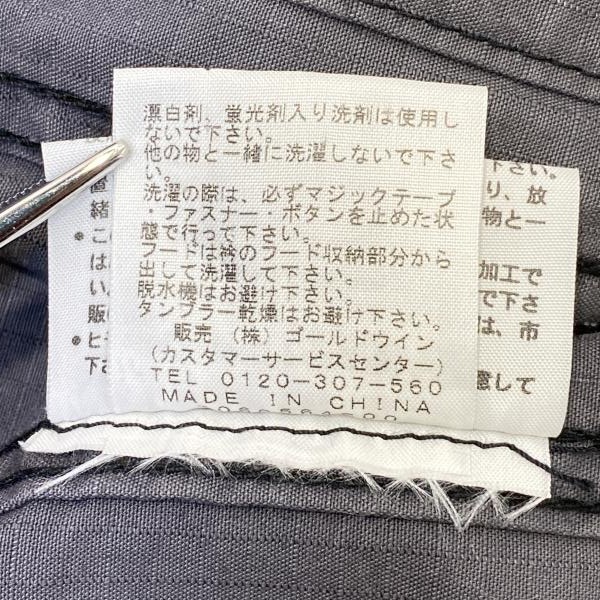 漂白剤、蛍光剤入り洗剤は使用し
ないで下さい。
他の物と一緒に洗濯しないで下さ
い。
洗濯の際は、必ずマジックテープ
・ファスナー・ボタンを止めた状
態で行って下さい。
フードは衿のフード収納部分から
出して洗濯して下さい。
脱水機はお避け下さい。
タンブラー乾燥はお避け下さい。
販売 (株) ゴールドウイン
(カスタマーサービスセンター)
TEL 0120-307-560
MADE IN CHINA
下さい。
り、放
緒
物と一
● こ
は
加工で
い。
で下さ
販
は、市
● ヒ
下さ
意して